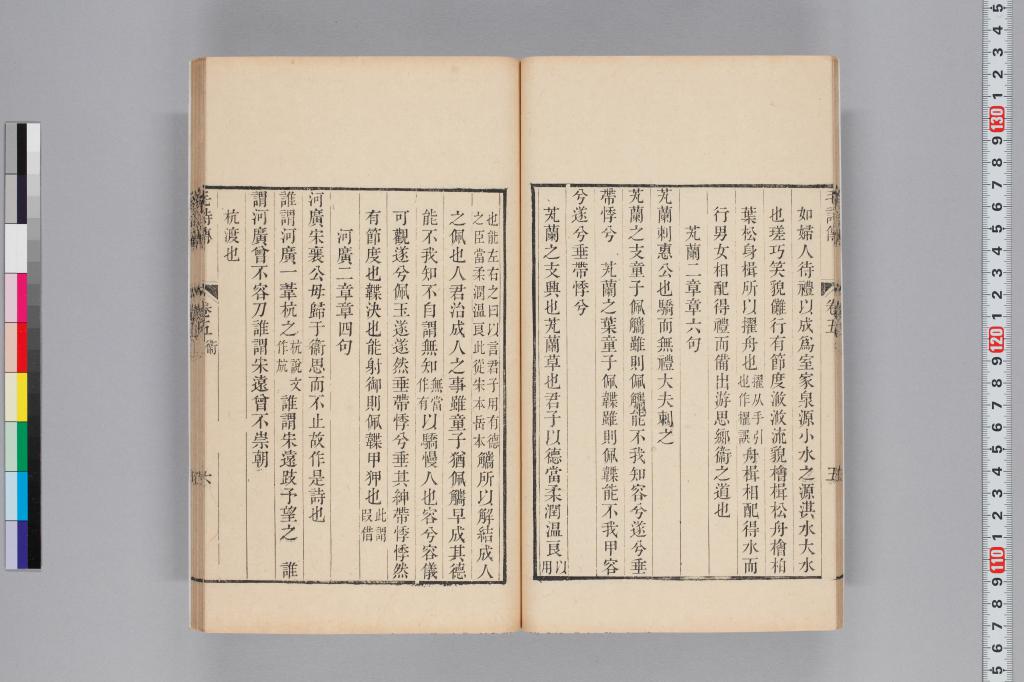 如婦人待禮以成爲室家泉源小水之源淇水大水
也瑳巧笑皃儺行有節度滺滺流皃檜楫松舟檜柏
葉松身楫所以擢舟也擢从手引也作櫂誤舟楫相配得水而
行男女相配得禮而備出游思鄉衞之道也
芄蘭二章章六句
芄蘭刺惠公也驕而無禮大夫刺之
芄蘭之支童子佩觿雖則佩觿能不我知容兮遂兮垂
帶悸兮　芄蘭之葉童子佩韘雖則佩韘能不我甲容
兮遂兮垂帶悸兮
芄蘭之支興也芄蘭草也君子以德當柔潤温良以用
也能左右之曰以言君子用有德之臣當柔潤温良此從宋本岳本觿所以解結成人
之佩也人君治成人之事雖童子猶佩觿早成其德
能不我知不自謂無知無當作有以驕慢人也容兮容儀
可觀遂兮佩玉遂遂然垂帶悸兮垂其紳帶悸悸然
有節度也韘決也能射御則佩韘甲狎也此謂叚借
河廣二章章四句
河廣宋襄公母歸于衞思而不止故作是詩也
誰謂河廣一葦杭之杭說文作㤚誰謂宋遠跂予望之　誰
謂河廣曾不容刀誰謂宋遠曾不崇朝
杭渡也
毛詩傳　卷五　五
毛詩傳　卷五　衞　六
5 4 3 2 1 130 9 8 7 6 5 4 3 2 1 120 9 8 7 6 5 4 3 2 1 110 9 8 7 6 5